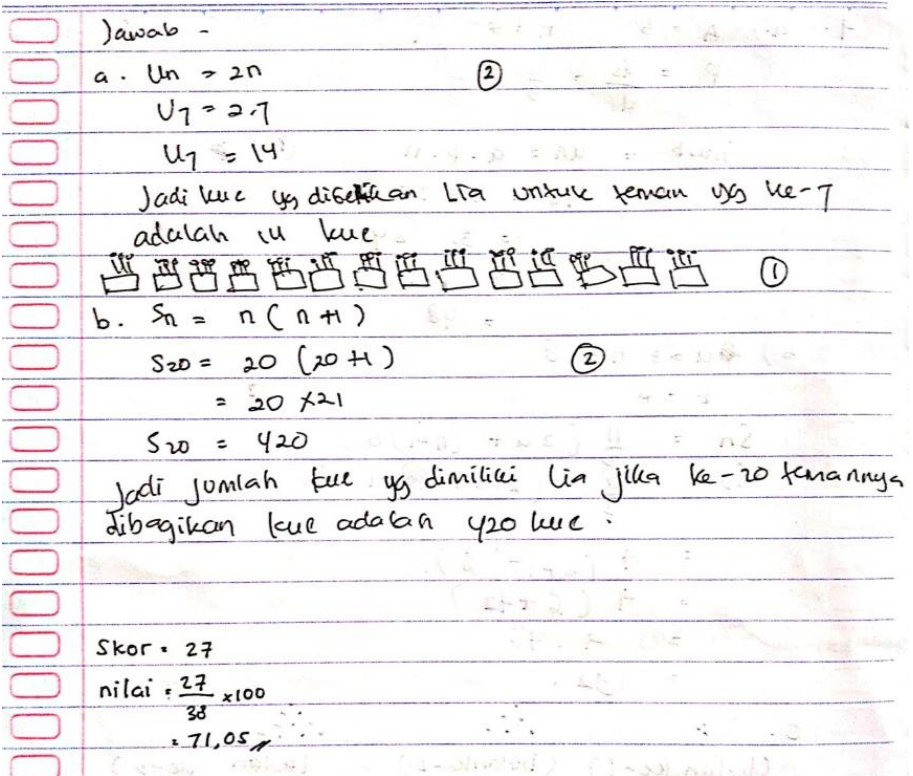 Jawab -
a. Un = 2n ②
U7 = 2.7
U7 = 14
Jadi kue yg diberikan Lia untuk teman yg ke-7
adalah 14 kue
①
b. Sn = n (n+1)
S20 = 20 (20+1) ②
= 20 x 21
S20 = 420
Jadi jumlah kue yg dimiliki Lia jika ke-20 temannya
dibagikan kue adalah 420 kue.
Skor = 27
nilai = 27/38 x100
= 71,05